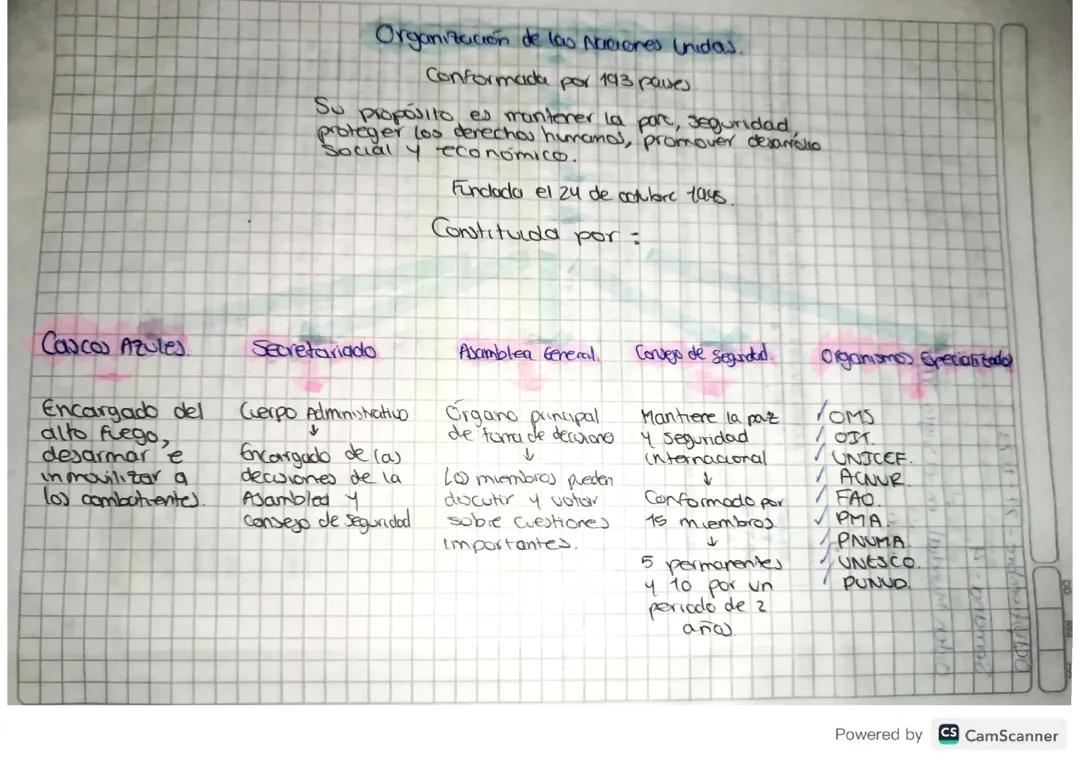 Organización de las Naciones Unidas.
Conformada por 193 países
Su propósito es mantener la paz, seguridad,
proteger los derechos humanos, promover desarrollo
social y económico.
Fundada el 24 de octubre 1945.
Constituida por:
Cascos Azules
Encargado del
alto fuego,
desarmar e
inmovilizar a
los combatientes.
Secretariado
Cuerpo Administrativo
↓
Encargado de las
decisiones de la
Asamblea y
Consejo de Seguridad
Asamblea General.
Órgano principal
de toma de decisiones
↓
Los miembros pueden
discutir y votar
sobre cuestiones
importantes.
Consejo de Seguridad.
Mantiene la paz
y seguridad
internacional
↓
Conformado por
15 miembros
↓
5 permanentes
y 10 por un
periodo de 2
años
Organismos Especializados
✓ OMS
✓ OIT.
✓ UNICEF.
✓ ACNUR.
✓ FAO.
✓ PMA.
✓ PNUMA.
✓ UNESCO.
✓ PUNUD.
Powered by CS CamScanner